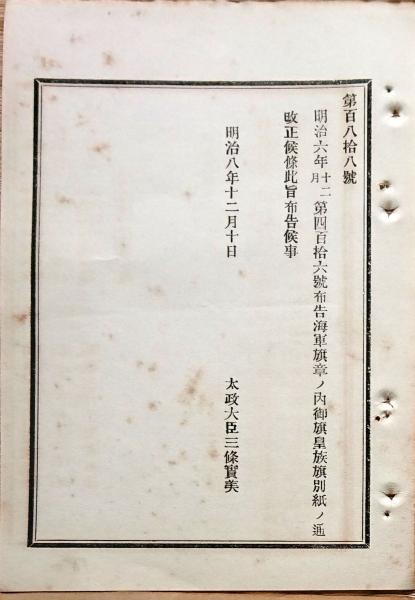 第百八拾八號
明治六年十二月第四百拾六號布告海軍旗章ノ內御旗皇族旗別紙ノ通
改正候條此旨布告候事
明治八年十二月十日
太政大臣三條實美